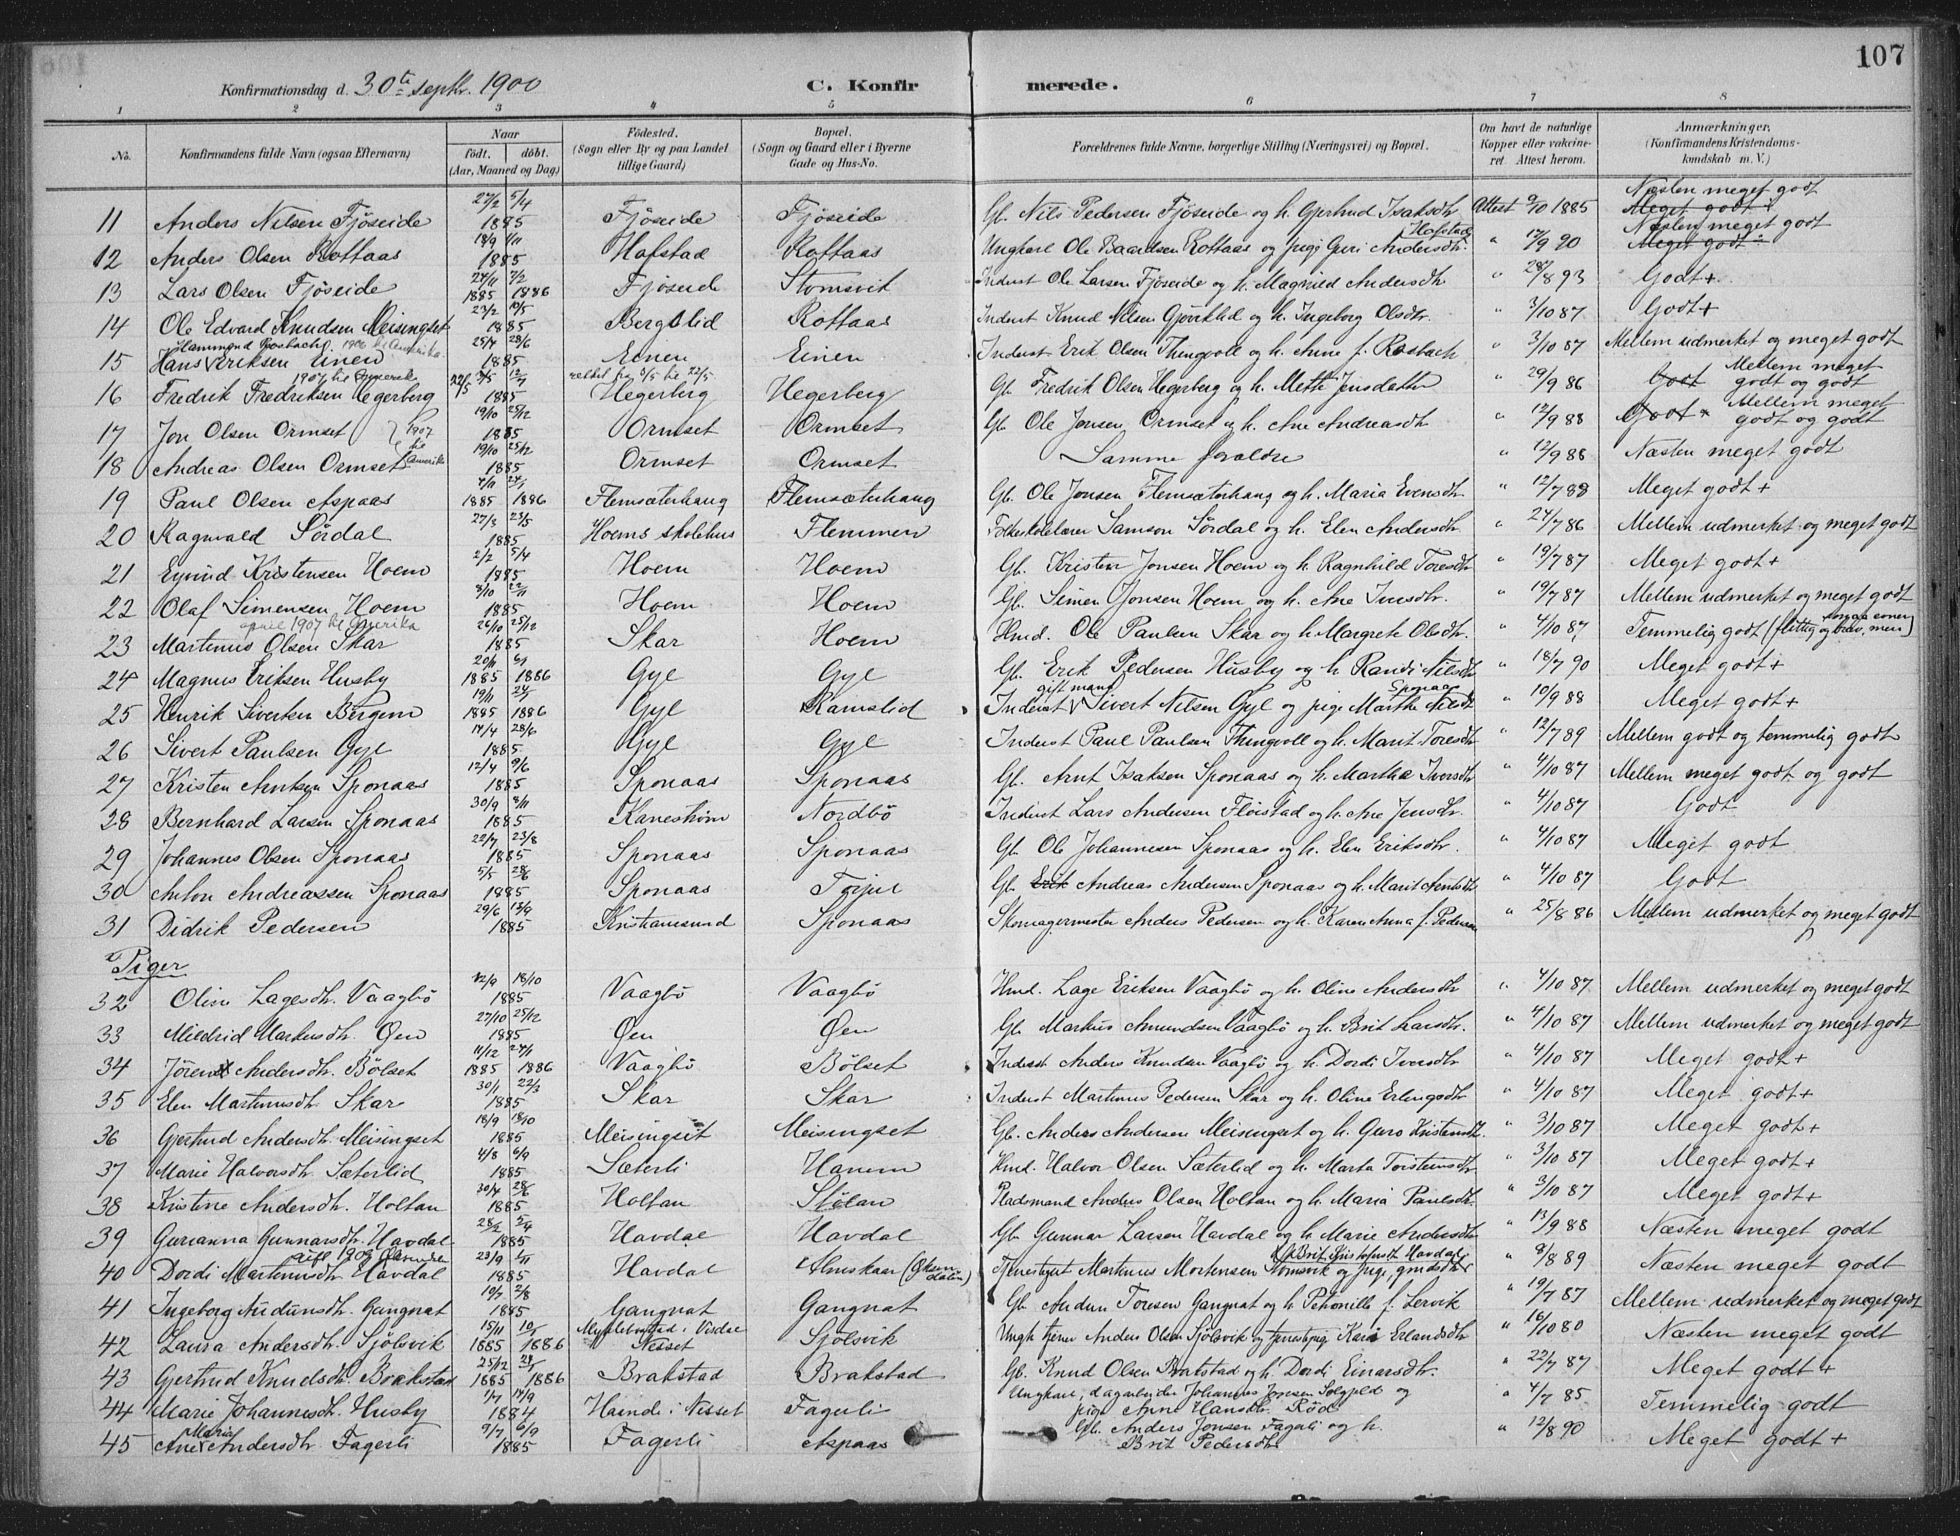 107
Konfirmationsdag d. 30te septbr. 1900 C. Konfirmerede.
1 2 3 4 5 6 7 8
No. Konfirmandens fulde Navn (ogsaa Efternavn) Naar födt. döbt. (Aar, Maaned og Dag) Födested. (Sogn eller By og paa Landet tillige Gaard) Bopæl. (Sogn og Gaard eller i Byerne Gade og Hus-No. Forældrenes fulde Navne, borgerlige Stilling (Næringsvei) og Bopæl. Om havt de naturlige Kopper eller vaccineret. Attest herom. Anmærkninger. (Konfirmandens Kristendomskundskab m. V.)
11 Anders Nilsen Fjöseide 27/2 5/4 1885 Fjöseide Fjöseide Gb. Nils Pedersen Fjöseide og h. Gjertrud Isaksdtr Attest 9/10 1885 Næsten meget godt Meget godt
12 Anders Olsen Rottaas 18/9 1/11 1885 Hafstad Rottaas Ungkarl Ole Baardsen Rottaas og pige Guri Andersdtr Hafstad " 12/9 90 Næsten meget godt Meget godt
13 Lars Olsen Fjöseide 24/11 7/2 1885 1886 Fjöseide Stomsvik Inderst Ole Larsen Fjöseide og h. Magnild Andersdtr " 28/8 93 Godt +
14 Ole Edvard Knudsen Meisingset 23/2 10/5 1885 Bergslid Rottaas Inderst Knud Nilsen Gjöviklid og h. Ingeborg Olsdtr. " 3/10 87 Godt +
15 Hans Hammond Rosbach Eriksen Einen 1906 til Amerika 25/4 28/6 1885 Einen Einen Inderst Erik Olsen Thingvoll og h. Anne f. Rosbach " 3/10 87 Mellem udmerket og meget godt
16 Fredrik Fredriksen Hegerberg 1907 til Amerika 22/5 3/5 12/7 1885 rettet fra 3/5 til 22/5 Hegerberg Hegerberg Gb. Fredrik Olsen Hegerberg og h. Mette Jensdatter " 29/9 86 Godt Mellem meget godt og godt
17 Jon Olsen Ormset 1907 til Amerika 19/10 25/12 1885 Ormset Ormset Gb. Ole Jonsen Ormset og h. Ane Andreasdtr " 12/9 88 Godt + Mellem meget godt og godt
18 Andreas Olsen Ormset 19/10 25/12 1885 Ormset Ormset Samme foraldre " 12/9 88 Næsten meget godt
19 Paul Olsen Aspaas 4/11 24/1 1885 1886 Flemsæterhaug Flemsæterhaug Gb. Ole Jonsen Flemsæterhaug og h. Maria Evensdtr. " 12/7 88 Meget godt +
20 Ragnvald Sördal 27/3 23/5 1885 Hoems skolehus Flemmen Folkeskolelærer Samson Sördal og h. Elen Andersdtr " 24/7 86 Mellem udmerket og meget godt
21 Eyvind Kristensen Hoem 2/2 5/4 1885 Hoem Hoem Gb. Kristen Jonsen Hoem og h. Ragnhild Toresdtr " 19/7 87 Meget godt +
22 Olaf Simensen Hoem 3/10 22/11 1885 Hoem Hoem Gb. Simen Jonsen Hoem og h. Ane Iversdtr. " 19/7 87 Mellem udmerket og meget godt
23 Martinus Olsen Skar april 1907 til Amerika 26/10 25/12 1885 Skar Hoem Hmd. Ole Paulsen Skar og h. Margrete Olsdtr. " 4/10 87 Temmelig godt (flittig og brav, men smaa evner)
24 Magnus Eriksen Husby 20/11 6/1 1885 1886 Gyl Gyl Gb. Erik Pedersen Husby og h. Randi Nilsdtr " 18/7 90 Meget godt +
25 Henrik Sivertsen Bergem 19/11 24/1 1885 1886 Gyl Ramslid Inderst gift mand Sivert Nilsen Gyl og pige Marthe Nilsdtr Sponaas " 10/9 88 Meget godt +
26 Sivert Paulsen Gyl 14/4 28/6 1885 Gyl Gyl Inderst Paul Paulsen Thingvoll og h. Marit Toresdtr " 12/7 89 Mellem godt og temmelig godt
27 Kristen Arntsen Sponaas 12/4 9/6 1885 Sponaas Sponaas Gb. Arnt Isaksen Sponaas og h. Martha Iversdtr " 4/10 87 Mellem meget godt og godt
28 Bernhard Larsen Sponaas 30/9 8/11 1885 Kaneström Nordbö Inderst Lars Andersen Flöistad og h. Ane Jensdtr. " 4/10 87 Godt
29 Johannes Olsen Sponaas 22/7 23/8 1885 Sponaas Sponaas Gb. Ole Johannesen Sponaas og h. Elen Eriksdtr. " 4/10 87 Meget godt
30 Anton Andreassen Sponaas 5/5 28/6 1885 Sponaas Torjul Gb. Erik Andreas Andersen Sponaas og h. Marit Arntsdtr " 4/10 87 Godt
31 Didrik Pedersen 29/6 13/9 1885 Kristiansund Sponaas Skomagermester Anders Pedersen og h. Karen Anna f. Pedersen " 25/8 86 Mellem udmerket og meget godt
Piger
32 Oline Lagesdtr. Vaagbö 12/9 18/10 1885 Vaagbö Vaagbö Hmd. Lage Eriksen Vaagbö og h. Oline Andersdtr " 4/10 87 Mellem udmerket og meget godt
33 Mildrid Markusdtr. Øen 27/10 25/12 1885 Øen Øen Gb. Markus Amundsen Vaagbö og h. Brit Larsdtr. " 4/10 87 Mellem udmerket og meget godt
34 Jören Andersdtr. Bölset 11/12 24/1 1885 1886 Vaagbö Bölset Inderst Anders Knudsen Vaagbö og h. Dordi Iversdtr " 4/10 87 Meget godt +
35 Elen Martinusdtr. Skar 30/1 22/3 1885 Skar Skar Inderst Martinus Pedersen Skar og h. Oline Erlingsdtr " 4/10 87 Meget godt +
36 Gjertrud Andersdtr. Meisingset 18/9 18/10 1885 Meisingset Meisingset Gb. Anders Andersen Meisingset og h. Guro Kristensdtr. " 3/10 87 Meget godt +
37 Marie Halvorsdtr. Sæterlid 4/8 6/9 1885 Sæterli Hanem Hmd. Halvor Olsen Sæterlid og h. Marta Torstensdtr " 3/10 87 Meget godt +
38 Kristine Andersdtr. Holtan 30/4 28/6 1885 Holtan Stölan Pladsmand Anders Olsen Holtan og h. Maria Paulsdtr " 3/10 87 Meget godt +
39 Gurianna Gunnarsdtr. Havdal 28/2 5/4 1885 Havdal Havdal Gb. Gunnar Larsen Havdal og h. Marie Andersdtr " 13/9 88 Næsten meget godt
40 Dordi Martinusdtr. Havdal 23/9 1/11 1885 Havdal Almskaar (Öksendalen) Tjenestegut Martinus Mortensen Stomsvik og pige Brit Havdal " 8/8 89 Næsten meget godt
41 Ingeborg Audunsdtr. Gangnat 19/7 2/8 1885 Gangnat Gangnat Gb. Audun Toresen Gangnat og h. Petronille f. Lervik " 19/7 87 Mellem udmerket og meget godt
42 Laura Andersdtr. Sjölsvik 15/11 10/1 1885 1886 i Visdal Nesset Sjölsvik Ungk. tjener Anders Olsen Sjölsvik og tjenestepige Kari Erlandsdtr " 16/10 80 Næsten meget godt
43 Gjertrud Knudsdtr. Brakstad 25/12 24/1 1885 1886 Brakstad Brakstad Gb. Knud Olsen Brakstad og h. Dordi Einarsdtr. " 22/7 87 Meget godt +
44 Marie Johannesdtr. Husby 1/7 14/9 1884 i Nesset Fagerli Ungkarl, dagarbeider Johannes Jonsen Solgjeld og pige Anne Hansdtr. Röd " 4/7 85 Temmelig godt
45 Ane Maria Andersdtr. Fagerli 9/7 6/9 1885 Fagerli Aspaas Gb. Anders Jonsen Fagerli og h. Brit Pedersdtr " 12/8 90 Meget godt +